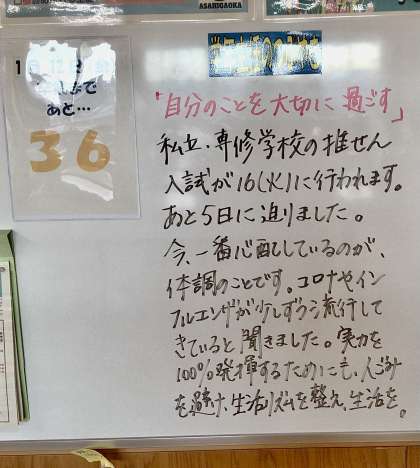 ASAHIGAOKA
まで
あと…
36
「自分のことを大切に過ごす」
私立・専修学校の推せん
入試が16(火)に行われます。
あと5日に迫りました。
今、一番心配しているのが、
体調のことです。コロナやイン
フルエンザが少しずつう流行して
きていると聞きました。実力を
100%発揮するためにも、人ごみ
を避け、生活リズムを整え、生活を。